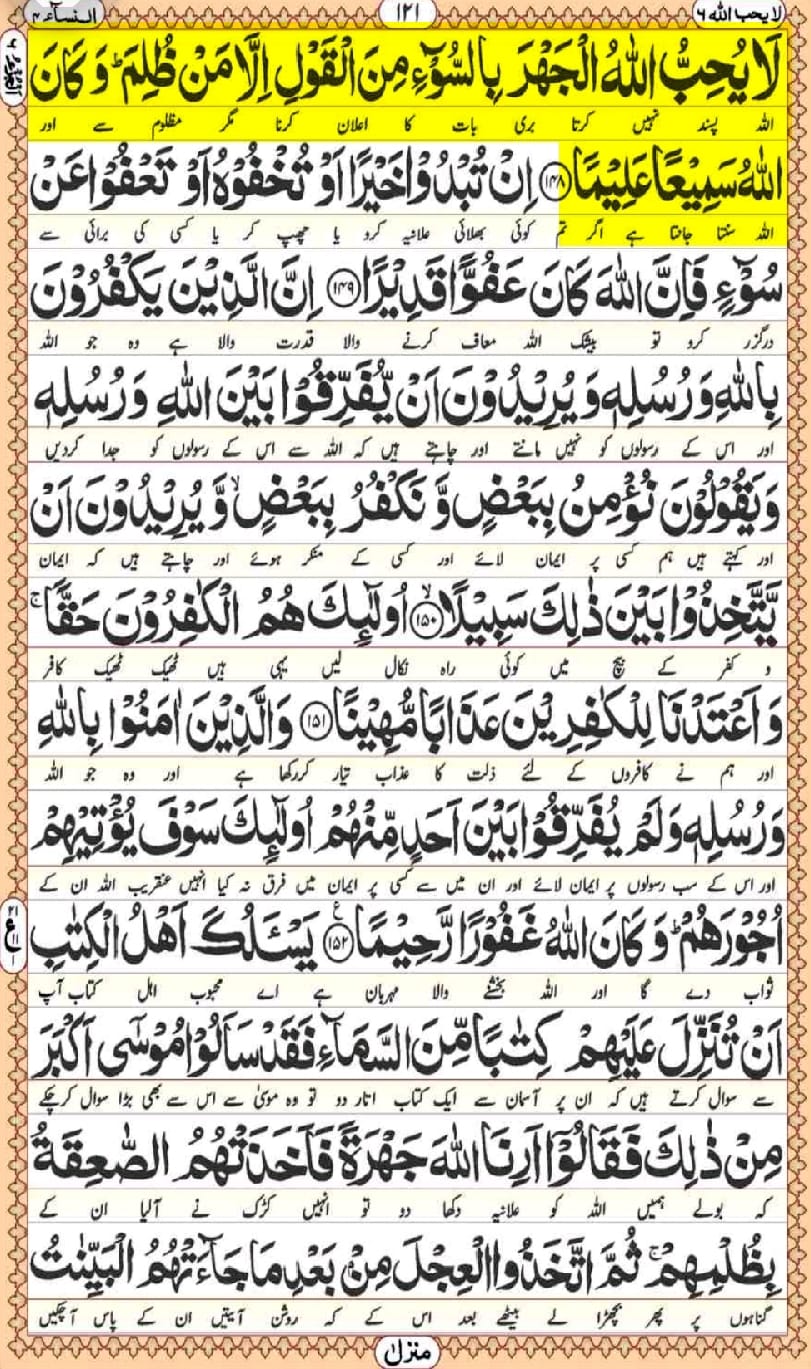 النسآء ۴
١٢١
لا یحب اللہ ۶
لَا یُحِبُّ اللّٰهُ الْجَهْرَ بِالسُّوْٓءِ مِنَ الْقَوْلِ اِلَّا مَنْ ظُلِمَ ؕ وَ كَانَ
اللہ پسند نہیں کرتا بری بات کا اعلان کرنا مگر مظلوم سے اور
اللّٰهُ سَمِیْعًا عَلِیْمًا ﴿۱۴۸﴾ اِنْ تُبْدُوْا خَیْرًا اَوْ تُخْفُوْهُ اَوْ تَعْفُوْا عَنْ
اللہ سنتا جانتا ہے اگر تم کوئی بھلائی علانیہ کرو یا چھپ کر یا کسی کی برائی سے
سُوْٓءٍ فَاِنَّ اللّٰهَ كَانَ عَفُوًّا قَدِیْرًا ﴿۱۴۹﴾ اِنَّ الَّذِیْنَ یَكْفُرُوْنَ
درگزر کرو تو بیشک اللہ معاف کرنے والا قدرت والا ہے وہ جو اللہ
بِاللّٰهِ وَ رُسُلِهٖ وَ یُرِیْدُوْنَ اَنْ یُّفَرِّقُوْا بَیْنَ اللّٰهِ وَ رُسُلِهٖ
اور اس کے رسولوں کو نہیں مانتے اور چاہتے ہیں کہ اللہ سے اس کے رسولوں کو جدا کردیں
وَ یَقُوْلُوْنَ نُؤْمِنُ بِبَعْضٍ وَّ نَكْفُرُ بِبَعْضٍ ۙ وَّ یُرِیْدُوْنَ اَنْ
اور کہتے ہیں ہم کسی پر ایمان لائے اور کسی کے منکر ہوئے اور چاہتے ہیں کہ ایمان
یَّتَّخِذُوْا بَیْنَ ذٰلِكَ سَبِیْلًا ۙ﴿۱۵۰﴾ اُولٰٓئِكَ هُمُ الْكٰفِرُوْنَ حَقًّا ۚ
و کفر کے بیچ میں کوئی راہ نکال لیں یہی ہیں ٹھیک ٹھیک کافر
وَ اَعْتَدْنَا لِلْكٰفِرِیْنَ عَذَابًا مُّهِیْنًا ﴿۱۵۱﴾ وَ الَّذِیْنَ اٰمَنُوْا بِاللّٰهِ
اور ہم نے کافروں کے لئے ذلت کا عذاب تیار کررکھا ہے اور وہ جو اللہ
وَ رُسُلِهٖ وَ لَمْ یُفَرِّقُوْا بَیْنَ اَحَدٍ مِّنْهُمْ اُولٰٓئِكَ سَوْفَ یُؤْتِیْهِمْ
اور اس کے سب رسولوں پر ایمان لائے اور ان میں سے کسی پر ایمان میں فرق نہ کیا انہیں عنقریب اللہ ان کے
اُجُوْرَهُمْ ؕ وَ كَانَ اللّٰهُ غَفُوْرًا رَّحِیْمًا ﴿۱۵۲﴾ یَسْـَٔلُكَ اَهْلُ الْكِتٰبِ
ثواب دے گا اور اللہ بخشنے والا مہربان ہے اے محبوب اہل کتاب آپ
اَنْ تُنَزِّلَ عَلَیْهِمْ كِتٰبًا مِّنَ السَّمَآءِ فَقَدْ سَاَلُوْا مُوْسٰۤى اَكْبَرَ
سے سوال کرتے ہیں کہ ان پر آسمان سے ایک کتاب اتار دو تو وہ موسیٰ سے اس سے بھی بڑا سوال کرچکے
مِنْ ذٰلِكَ فَقَالُوْۤا اَرِنَا اللّٰهَ جَهْرَةً فَاَخَذَتْهُمُ الصّٰعِقَةُ
کہ بولے ہمیں اللہ کو علانیہ دکھا دو تو انہیں کڑک نے آلیا ان کے
بِظُلْمِهِمْ ۚ ثُمَّ اتَّخَذُوا الْعِجْلَ مِنْ بَعْدِ مَا جَآءَتْهُمُ الْبَیِّنٰتُ
گناہوں پر پھر بچھڑا لے بیٹھے بعد اس کے کہ روشن آیتیں ان کے پاس آچکیں
منزل ١